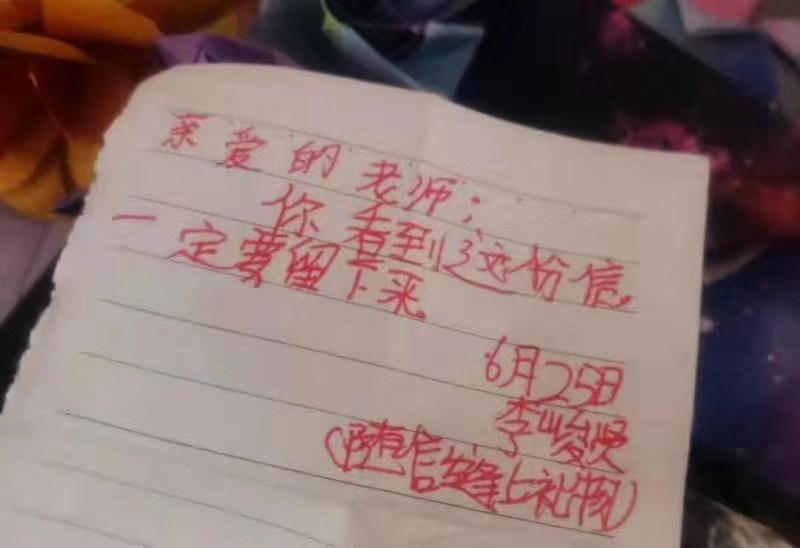 亲爱的老师;
你看到这份信,
一定要留下来。
6月25日
李峻贤
(随信奉上礼物)